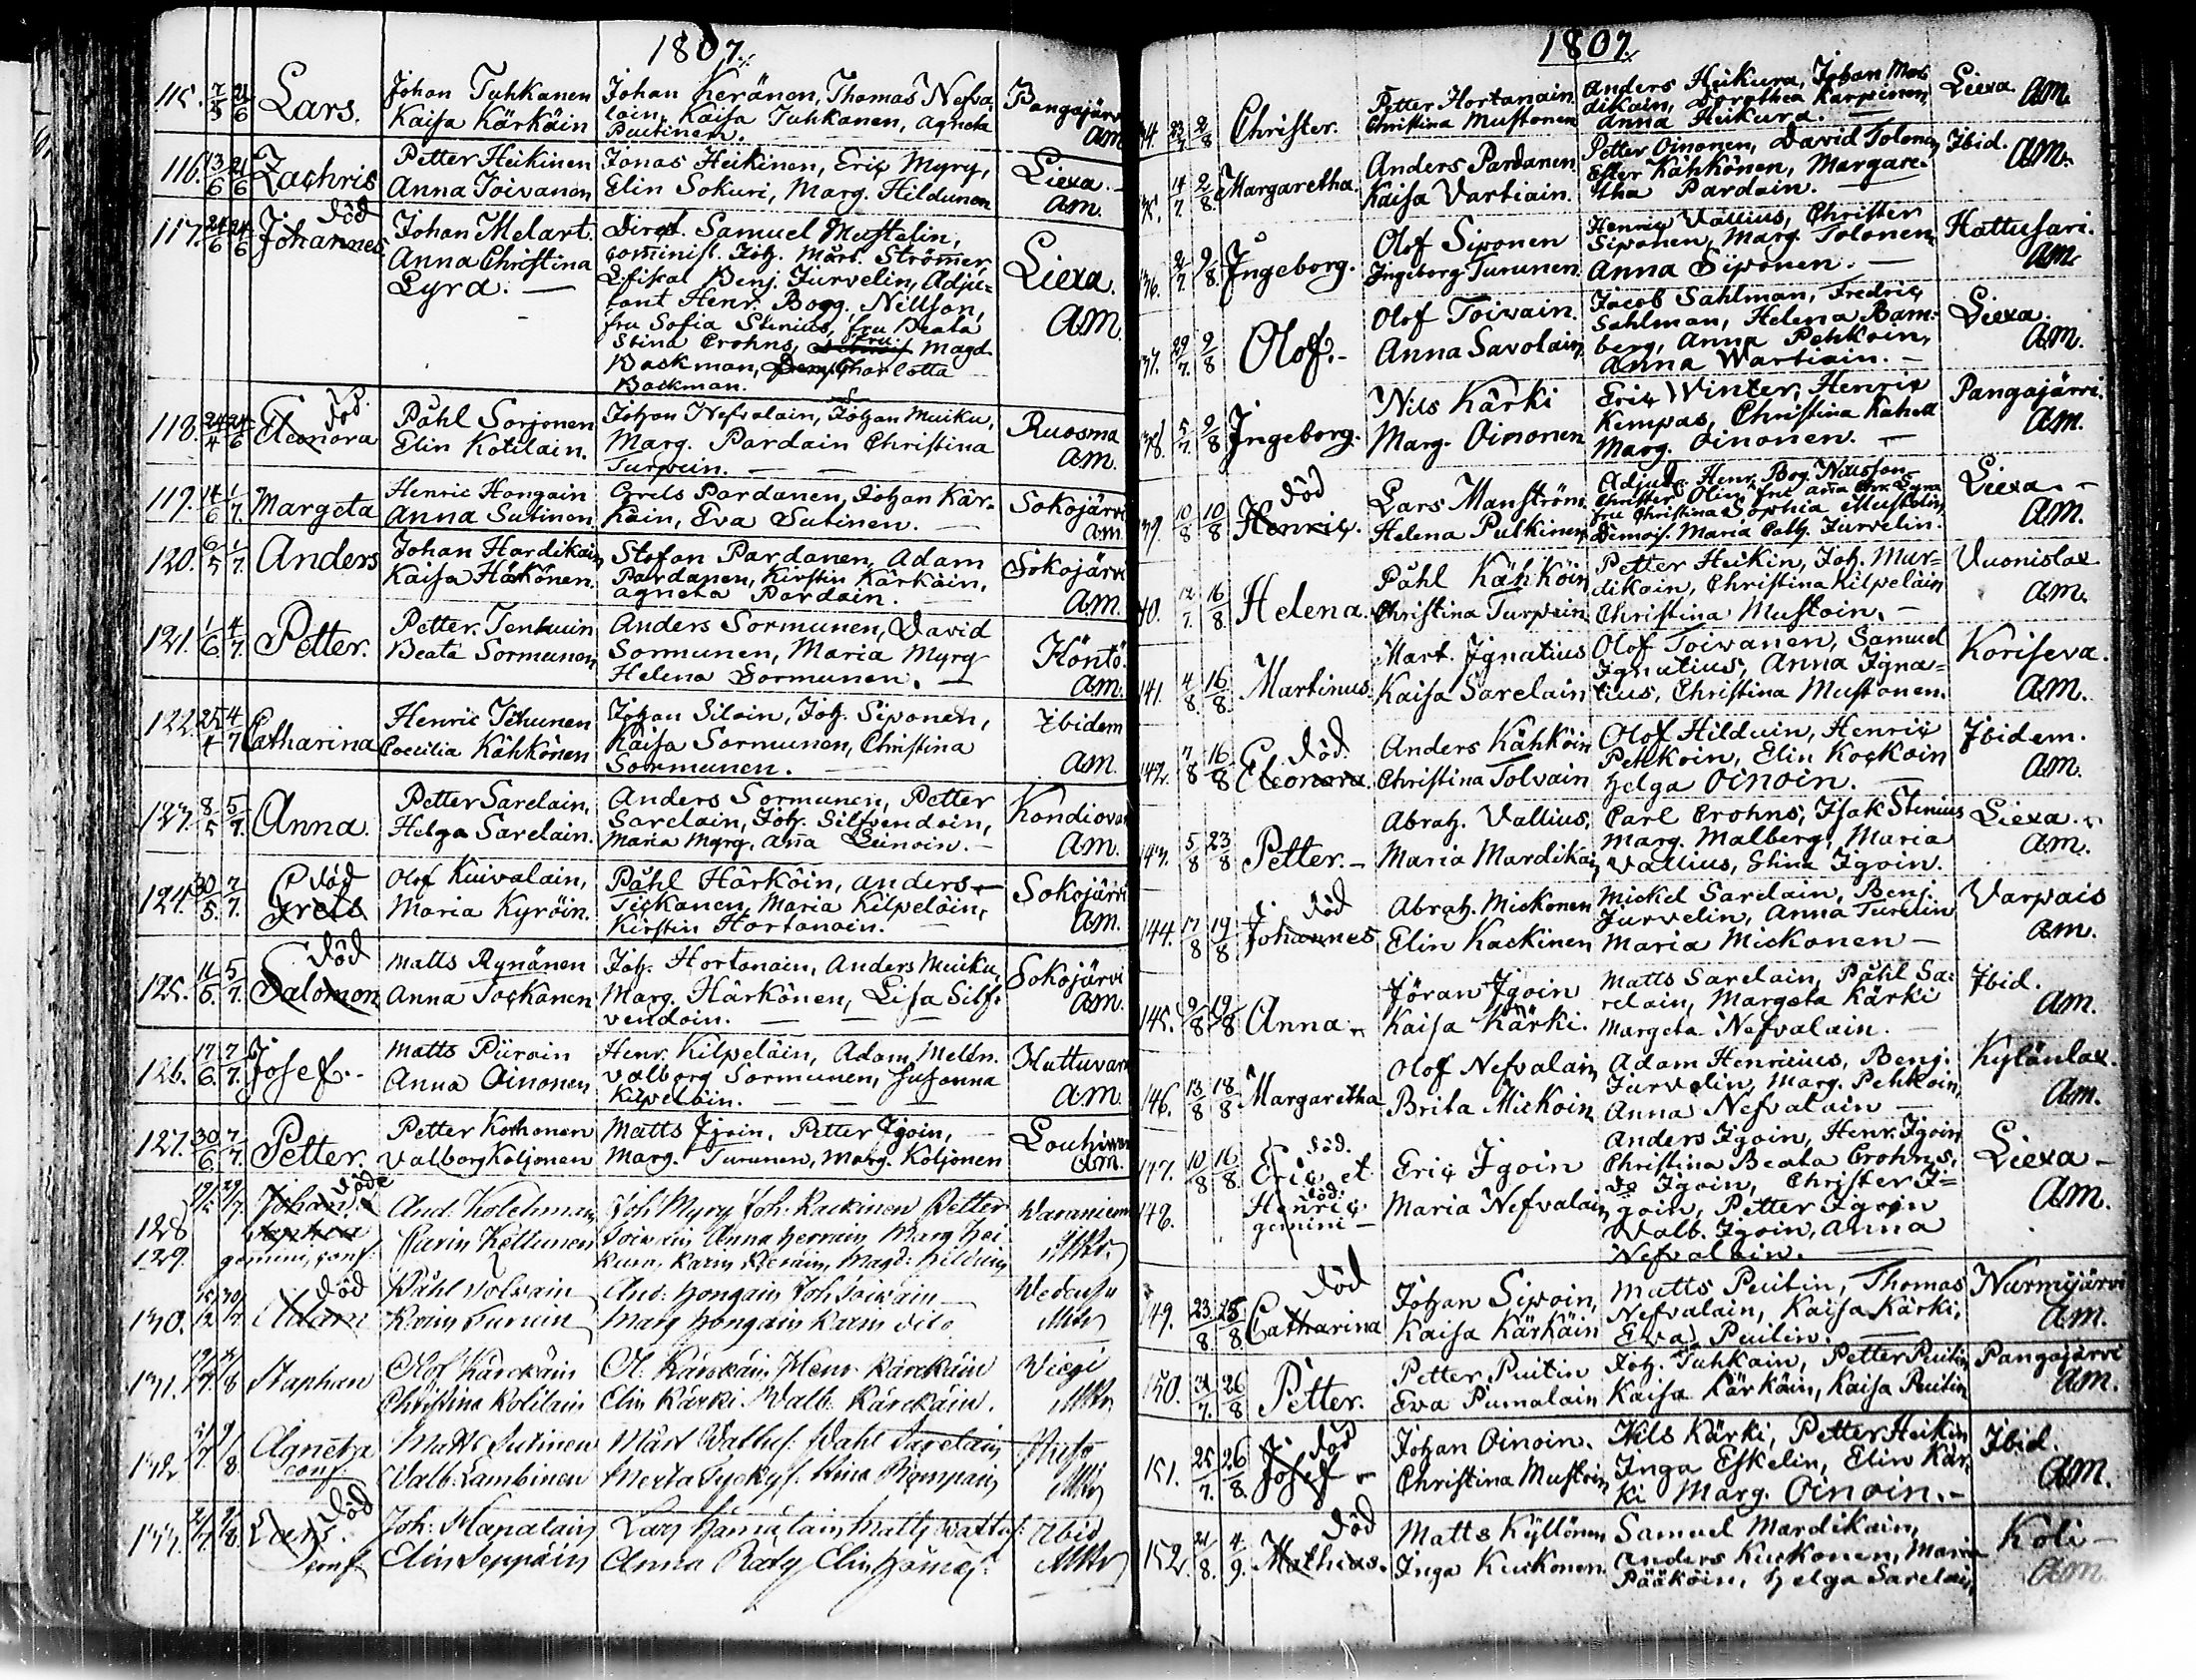 1807.
115. 7/5 21/6 Lars. Johan Tuhkanen Johan Keränen, Thomas Nefva Pangajärvi
Kaisa Kärkäin lain, Kaisa Tuhkanen, Agneta
Puutinen. Am
116. 13/6 21/6 Zachris Petter Heikinen Jonas Heikinen, Eric Myry, Liexa
Anna Toivanen Elin Sokuri, Marg. Hildunen Am.
117. 24/6 24/6 död Johannes Johan Melart. Direct. Samuel Mustelin,
Anna Christina comminist. Joh. Mårt. Strömer, Liexa.
Lyra. — Lfiskal Benj. Jurvelin, Adju=
tant Henr. Bogg, Nillson, Am.
fru Sofia Stenius, fru Beata
Stina Crohns, fru Magd.
Backman, Charlotta
Backman.
118. 24/4 24/6 död. Eleonora Påhl Sorjonen Johan Nefvalain, Johan Muiku, Ruosma
Elin Kotilain. Marg. Pardain Christina
Turpein. — Am.
119. 14/6 1/7. Margeta Henric Hongain Grels Pardanen, Johan Kär- Sokojärvi
Anna Sutinen käin, Eva Sutinen. — Am.
120. 6/5 1/7. Anders Johan Hardikain Stefan Pardanen, Adam Sokojärvi
Kaisa Härkönen. Pardanen, Kirstin Kärkäin,
Agneta Pardain. Am.
121. 1/6 4/7. Petter. Petter Tenhuin Anders Sormunen, David
Beata Sormunen Sormunen, Maria Myry Höntö.
Helena Sormunen. Am.
122. 25/4 4/7 Catharina Henric Johan Silain, Joh. Siponen, Ibidem
Coecilia Kähkönen Kaisa Sormunen, Christina
Sormunen. Am.
123. 8/5 5/7. Anna. Petter Sarelain, Anders Sormunen, Petter Kondiovar
Helga Sarelain. Sarelain, Joh. Silfvendoin,
Maria Myry, Anna Leinoin. — Am.
124. 30/5. 7/7. död Grels Olof Kuivalain, Påhl Härköin, Anders Sokojärvi
Maria Kyröin. Tickanen, Maria Kilpeläin,
Kirstin Hortanain. Am.
125. 11/6. 5/7. död Salomon Matts Rynänen Joh. Hortanain, Anders Muiku, Sokojärvi
Anna Tockanen Marg. Härkönen, Lisa Silf- Am.
vendoin.
126. 17/6. 7/7. Josef. Matts Piirain Henr. Kilpeläin, Adam Melln. Hattuvara
Anna Oinonen Valborg Sormunen, Susanna
Kilpeläin. Am.
127. 30/6. 7/7. Petter. Petter Kothonen Matts Igoin, Petter Igoin,
Valborg Koljonen Marg. Turunen, Marg. Koljonen Am.
128 döde Johan And. Kolehman Joh Myry Joh. Rackinen Petter
129. gemini, conf. Carin Kettunen Toivain Anna Marg Hei
kura, Karin Magd: Hilduin
130. död Adam Påhl Tolvain And: Hongain Joh Toivain
Karin Turuin Marg Hongain Karin dito
131. Staphan Olof Kärckäin Ol. Kärckäin Henr. Kärckäin Viegi
Christina Kotilain Elin Kärki Walb. Kärckäin.
132. Agneta conf. Matts Sutinen Mårt Wallius Påhl Sarelain
Valb: Lambinen Stina Romppain
133. död Lars. conf. Joh: Lars Hämäläin Matts Ibid
Elin Seppäin Anna Elin Hämäl.
1807.
134. 23/7 2/8 Christer. Petter Hortanain. Anders Heikura, Johan Mar Liexa.
Christina Mustonen dikain, Dorothea Karpeinen, Am.
Anna Heikura. —
135. 14/7. 2/8. Margaretha Anders Pardanen Petter Oinonen, David Tolonen Ibid.
Kaisa Vartiain. Ester Kähkönen, Margare- Am.
tha Pardain. —
136. 2/7. 9/8. Ingeborg. Olof Siponen Henric Vallius, Christer Hattusari.
Ingeborg Turunen Siponen, Marg. Tolonen
Anna Siponen. — Am.
137. 29/7. 9/8 Olof. Olof Toivain. Jacob Sahlman, Fredric Liexa.
Anna Savolain Sahlman, Helena Bam-
berg, Anna Pehkoin, Am.
Anna Wartiain. —
138. 5/7. 9/8 Ingeborg. Nils Kärki Eric Winter, Henric Pangajärvi.
Marg. Oinonen Kempas, Christina Kahell
Marg. Oinonen. — Am.
139. 10/8 10/8 död Henric. Lars Manström Adjut. Henr. Bog. Nillsson Liexa.
Helena Pulkinen Christer Olin, fru Anna Chr. Lyra
fru Christina Sophia Mustelin Am.
Demois. Maria Cath. Jurvelin.
140. 12/7. 16/8. Helena. Påhl Kähköin Petter Heikin, Joh. Mur- Vuonislax
Christina Turpein dikain, Christina Kilpeläin
Christina Mustoin. — Am.
141. 4/8. 16/8. Martinus Mart. Ignatius Olof Toivanen, Samuel Koriseva.
Kaisa Sarelain Ignatius, Anna Igna=
tius, Christina Mustonen. Am.
142. 7/8 16/8 död. Eleonora. Anders Kähköin Olof Hilduin, Henric Ibidem.
Christina Tolvain Pehkoin, Elin Kockoin
Helga Oinoin. Am.
143. 5/8 23/8 Petter. Abrah. Vallius, Carl Crohns, Isak Stenius Liexa.
Maria Mardikain Marg. Malberg, Maria
Vallius, Stina Igoin. Am.
144. 17/8 19/8 död Johannes Abrah. Mickonen Mickel Sarelain, Benj. Varpais
Elin Kackinen Jurvelin, Anna Turelin
Maria Mickonen — Am.
145. 9/8 19/8 Anna. Jöran Igoin Matts Sarelain, Påhl Sa- Ibid.
Kaisa Kärki. relain, Margeta Kärki
Margeta Nefvalain. — Am.
146. 13/8 18/8 Margaretha Olof Nefvalain Adam Henricius, Benj. Kylänlax.
Brita Mickoin Jurvelin, Marg. Pehkoin,
Anna Nefvalain — Am.
147. 10/8 16/8 död. Eric et Eric Igoin Anders Igoin, Henr. Igoin Liexa
Christina Beata Crohns,
148. död. Henric gemini — Maria Nefvalain do Igoin, Christer I= Am.
goin, Petter Igoin
Walb. Igoin, Anna
Nefvalain.
149. 23/8 25/8 död Catharina Johan Sipoin, Matts Puitin, Thomas Nurmijärvi
Kaisa Kärkäin Nefvalain, Kaisa Kärki,
Eva Puitin. — Am.
150. 31/7. 26/8 Petter. Petter Puitin Joh. Tuhkain, Petter Puitin Pangajärvi
Eva Pumalain Kaisa Kärkäin, Kaisa Puitin Am.
151. 25/7. 26/8. död Josef Johan Oinoin. Nils Kärki, Petter Heikin Ibid.
Christina Mustoin Inga Eskelin, Elin Kär-
ki Marg. Oinoin. — Am.
152. 21/8. 4/9. död Mathias. Matts Kyllönen Samuel Mardikain, Koli
Inga Kuckonen. Anders Kuckonen, Maria
Pääköin, Helga Sarelain, Am.